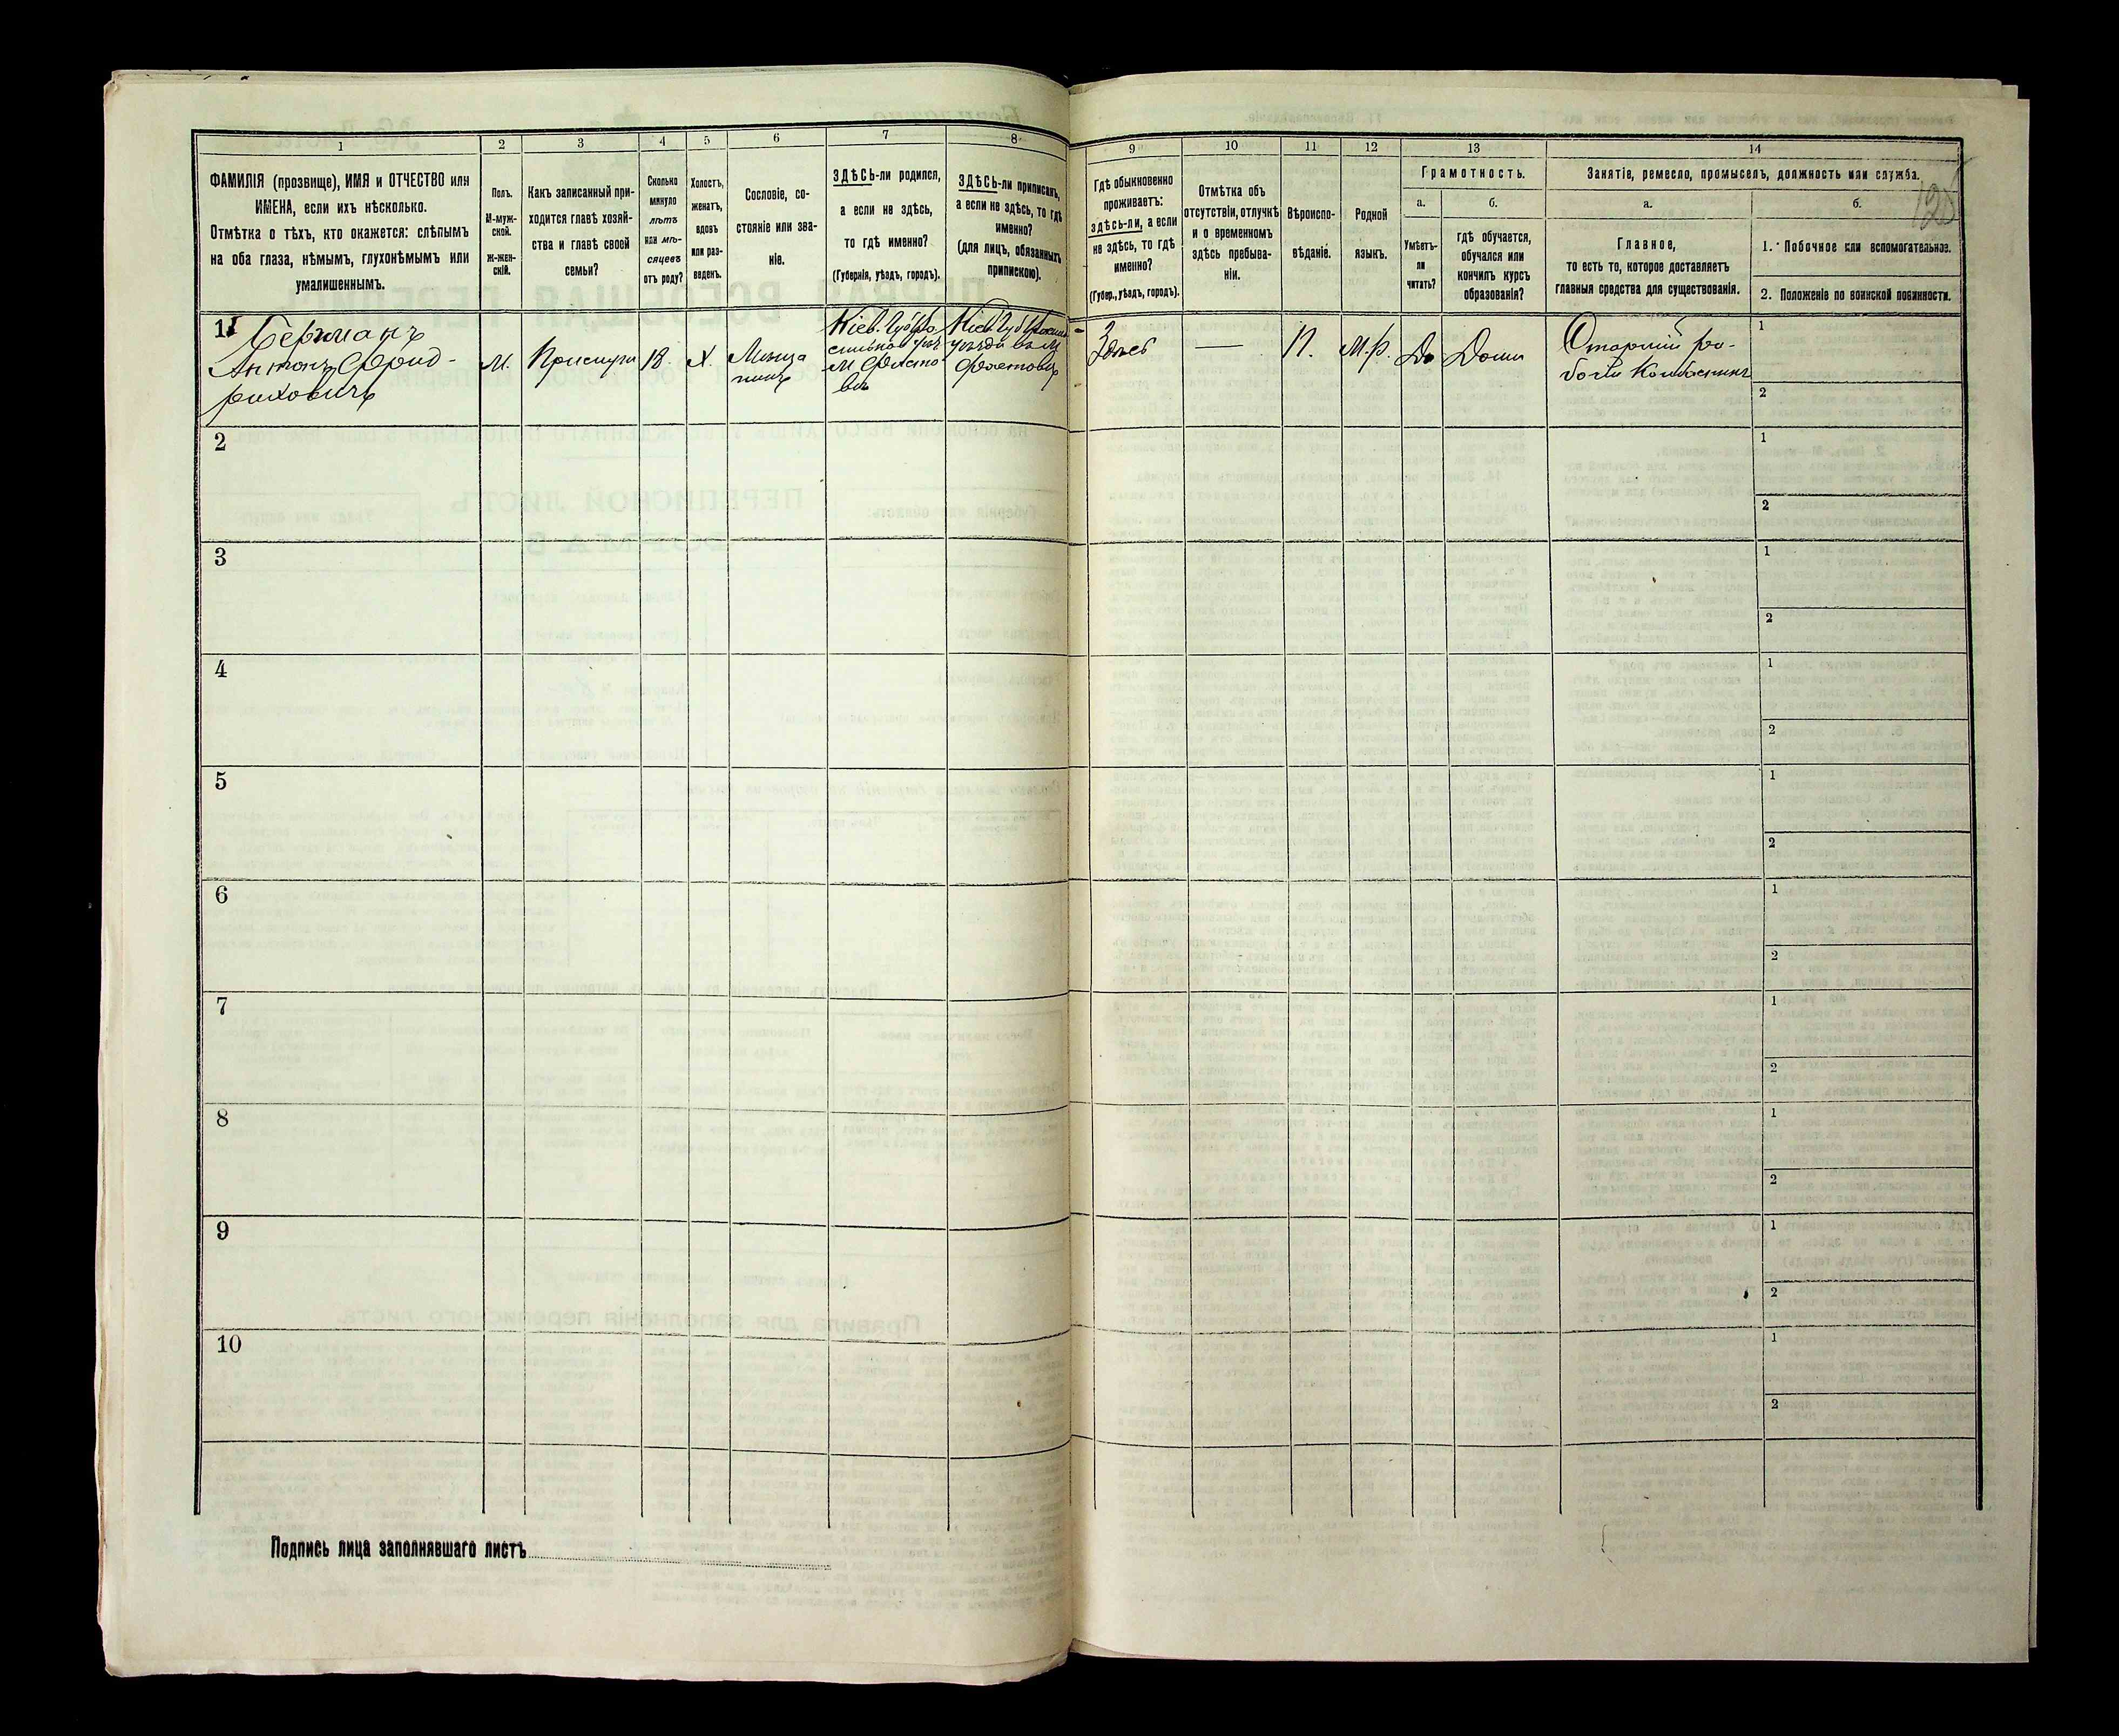 1
2
3
4
5
6
7
8
ФАМИЛІЯ (прозвище), ИМЯ и ОТЧЕСТВО или
ИМЕНА, если ихъ нѣсколько.
Отмѣтка о тѣхъ, кто окажется: слѣпымъ
на оба глаза, нѣмымъ, глухонѣмымъ или
умалишеннымъ.
Полъ.
М-муж-
ской.
Ж-жен-
скій.
Какъ записанный при-
ходится главѣ хозяй-
ства и главѣ своей
семьи?
Сколько
минуло
лѣтъ
или мѣ-
сяцевъ
отъ роду?
Холостъ,
женатъ,
вдовъ
или раз-
веденъ.
Сословіе, со-
стояніе или зва-
ніе.
ЗДѢСЬ-ли родился,
а если не здѣсь,
то гдѣ именно?
(Губернія, уѣздъ, городъ).
ЗДѢСЬ-ли приписанъ,
а если не здѣсь, то гдѣ
именно?
(для лицъ, обязанныхъ
припискою).
9
10
11
12
13
14
Гдѣ обыкновенно
проживаетъ:
здѣсь-ли, а если
не здѣсь, то гдѣ
именно?
(Губер., уѣздъ, городъ).
Отмѣтка объ
отсутствіи, отлучкѣ
и о временномъ
здѣсь пребыва-
ніи.
Вѣроиспо-
вѣданіе.
Родной
языкъ.
Грамотность.
а.
Умѣетъ-
ли
читать?
б.
гдѣ обучается,
обучался или
кончилъ курсъ
образованія?
Занятіе, ремесло, промыселъ, должность или служба.
а.
Главное,
то есть то, которое доставляетъ
главныя средства для существованія.
б.
1. Побочное или вспомогательное.
2. Положеніе по воинской повинности.
1
Антонъ Фрид-
риховичъ
М.
18.
Х.
Здѣсь
—
П.
Да
Дома
Старшій
1
2
2
1
2
3
1
2
4
1
2
5
1
2
6
1
2
7
1
2
8
1
2
9
1
2
10
1
2
Подпись лица заполнявшаго листъ